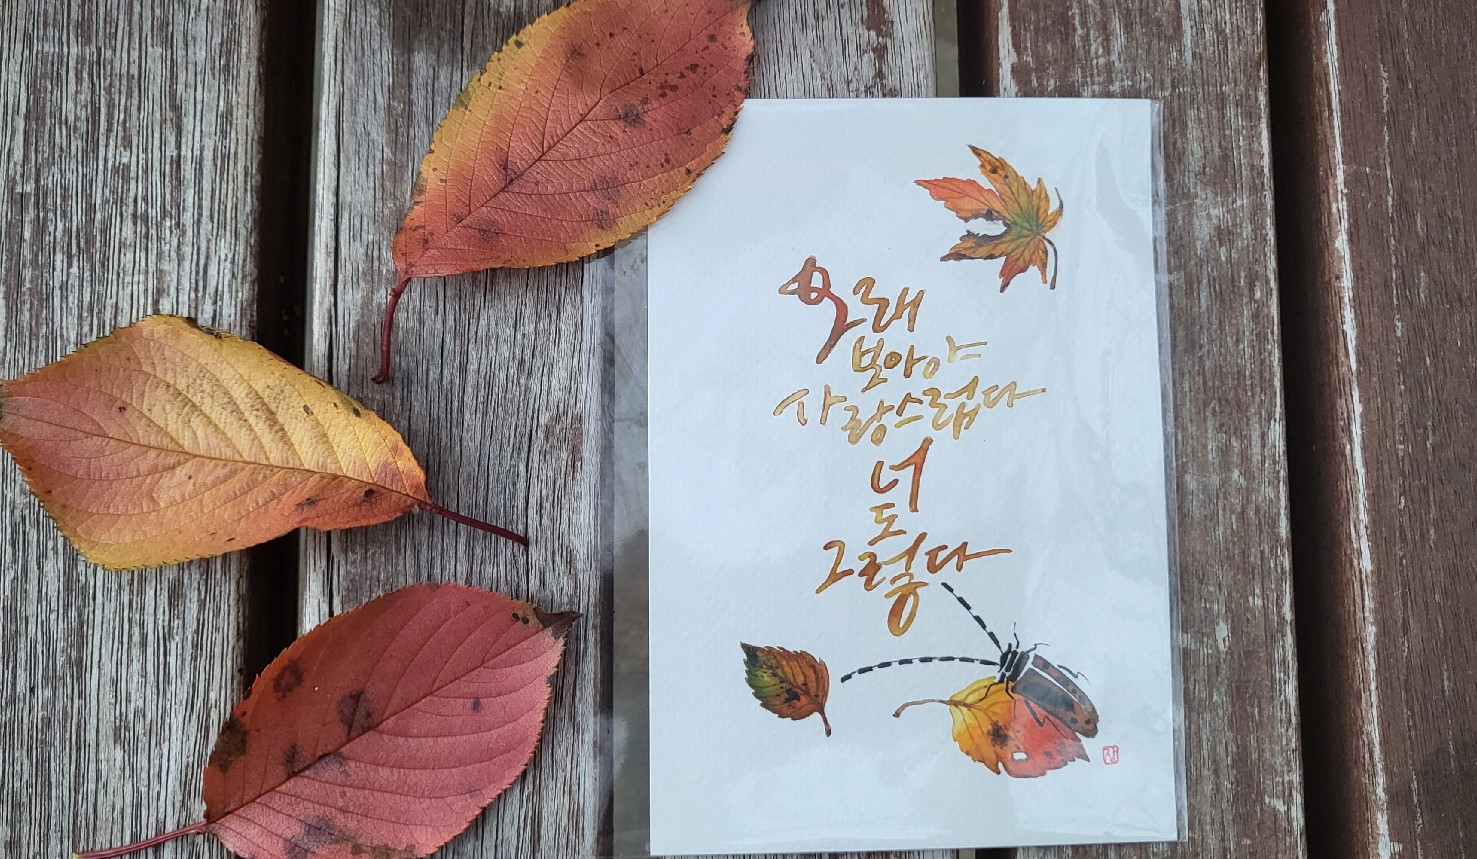 오래
보아야
사랑스럽다
너
도
그렇다